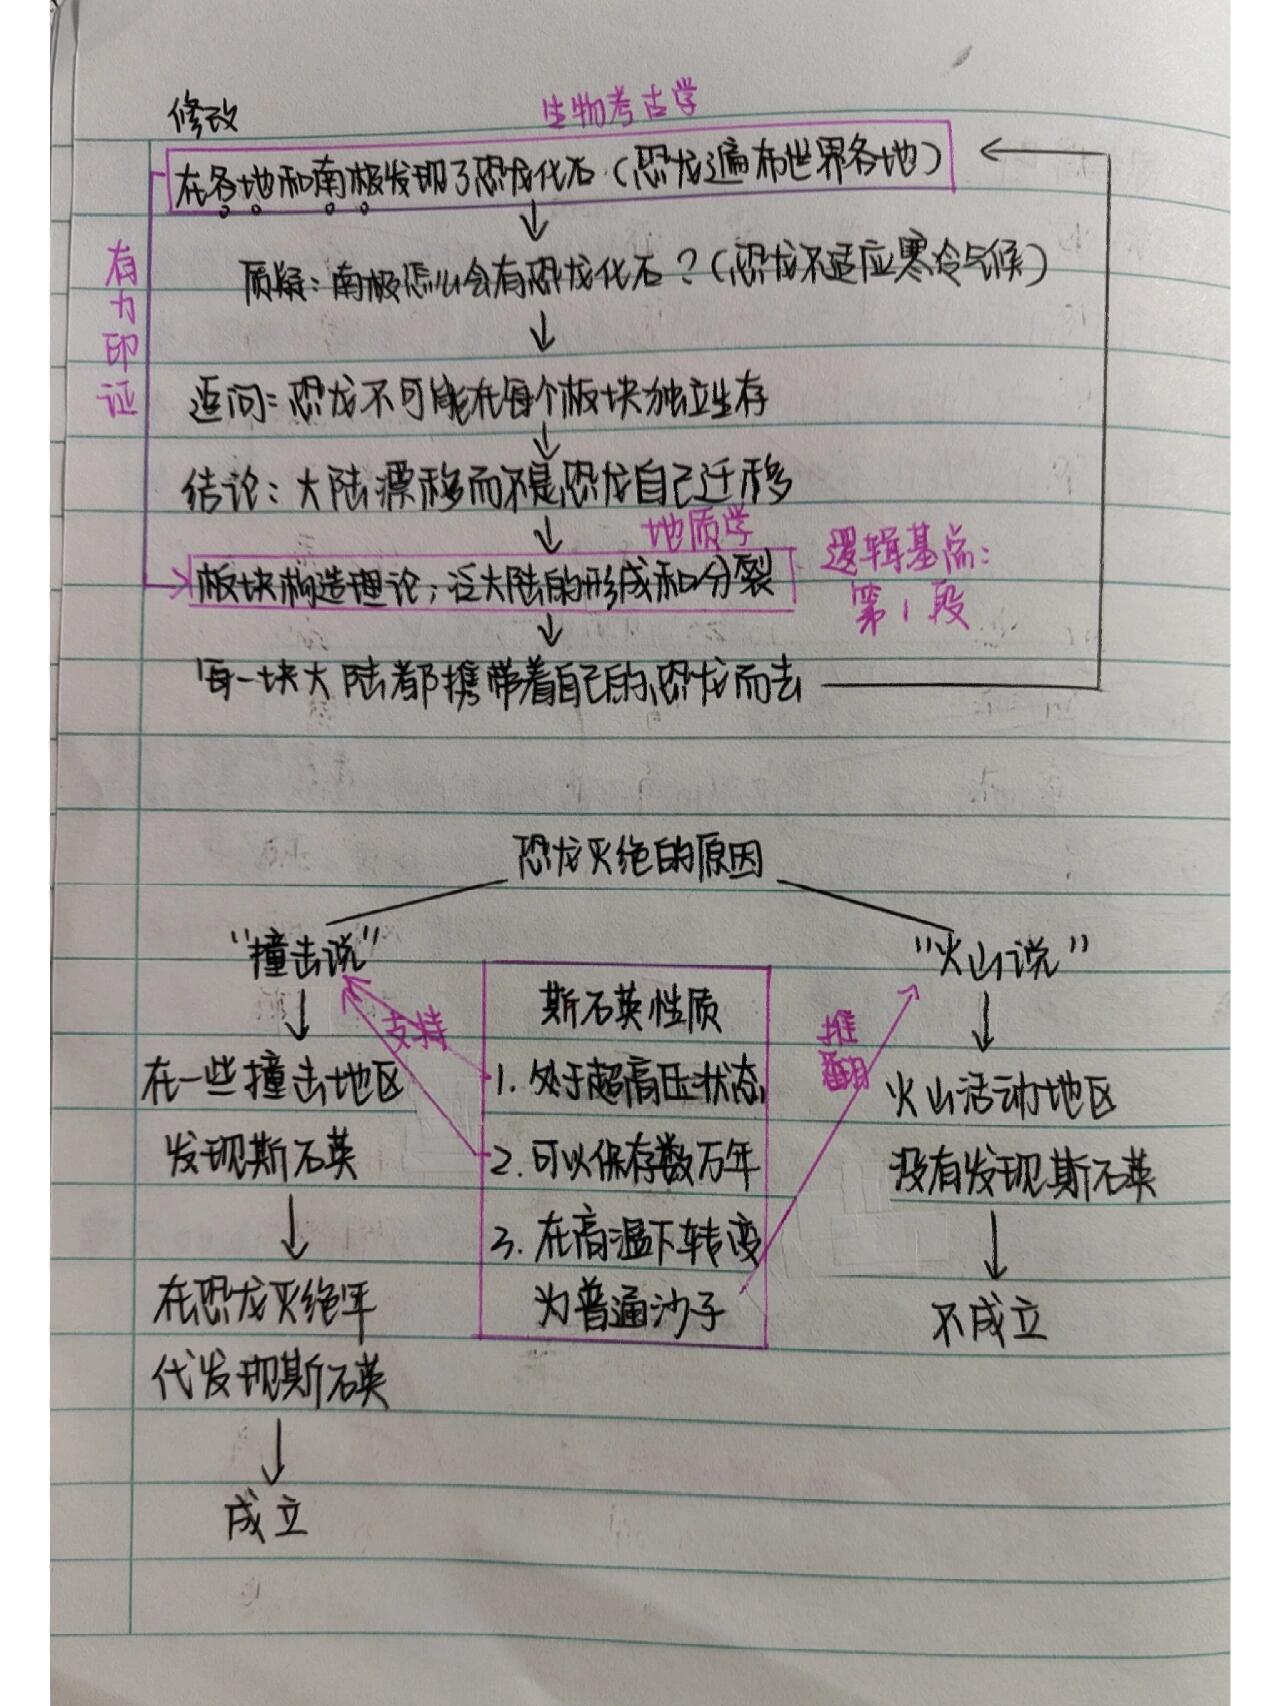 修改
生物考古学
在各地和南极发现了恐龙化石（恐龙遍布世界各地）
有力印证
质疑：南极怎么会有恐龙化石？（恐龙不适应寒冷气候）
追问：恐龙不可能在每个板块独立生存
结论：大陆漂移而不是恐龙自己迁移
地质学
板块构造理论；泛大陆的形成和分裂
逻辑基点：
第1段
每一块大陆都携带着自己的恐龙而去
恐龙灭绝的原因
“撞击说”
在一些撞击地区
发现斯石英
在恐龙灭绝年
代发现斯石英
成立
支持
斯石英性质
1. 处于超高压状态
2. 可以保存数万年
3. 在高温下转变
为普通沙子
推翻
“火山说”
火山活动地区
没有发现斯石英
不成立